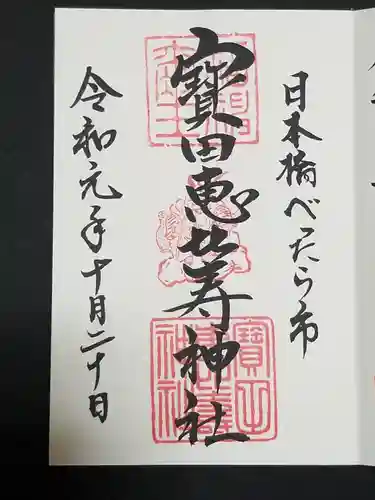 日本橋べったら市
寶田恵比寿神社
令和元年十月二十日